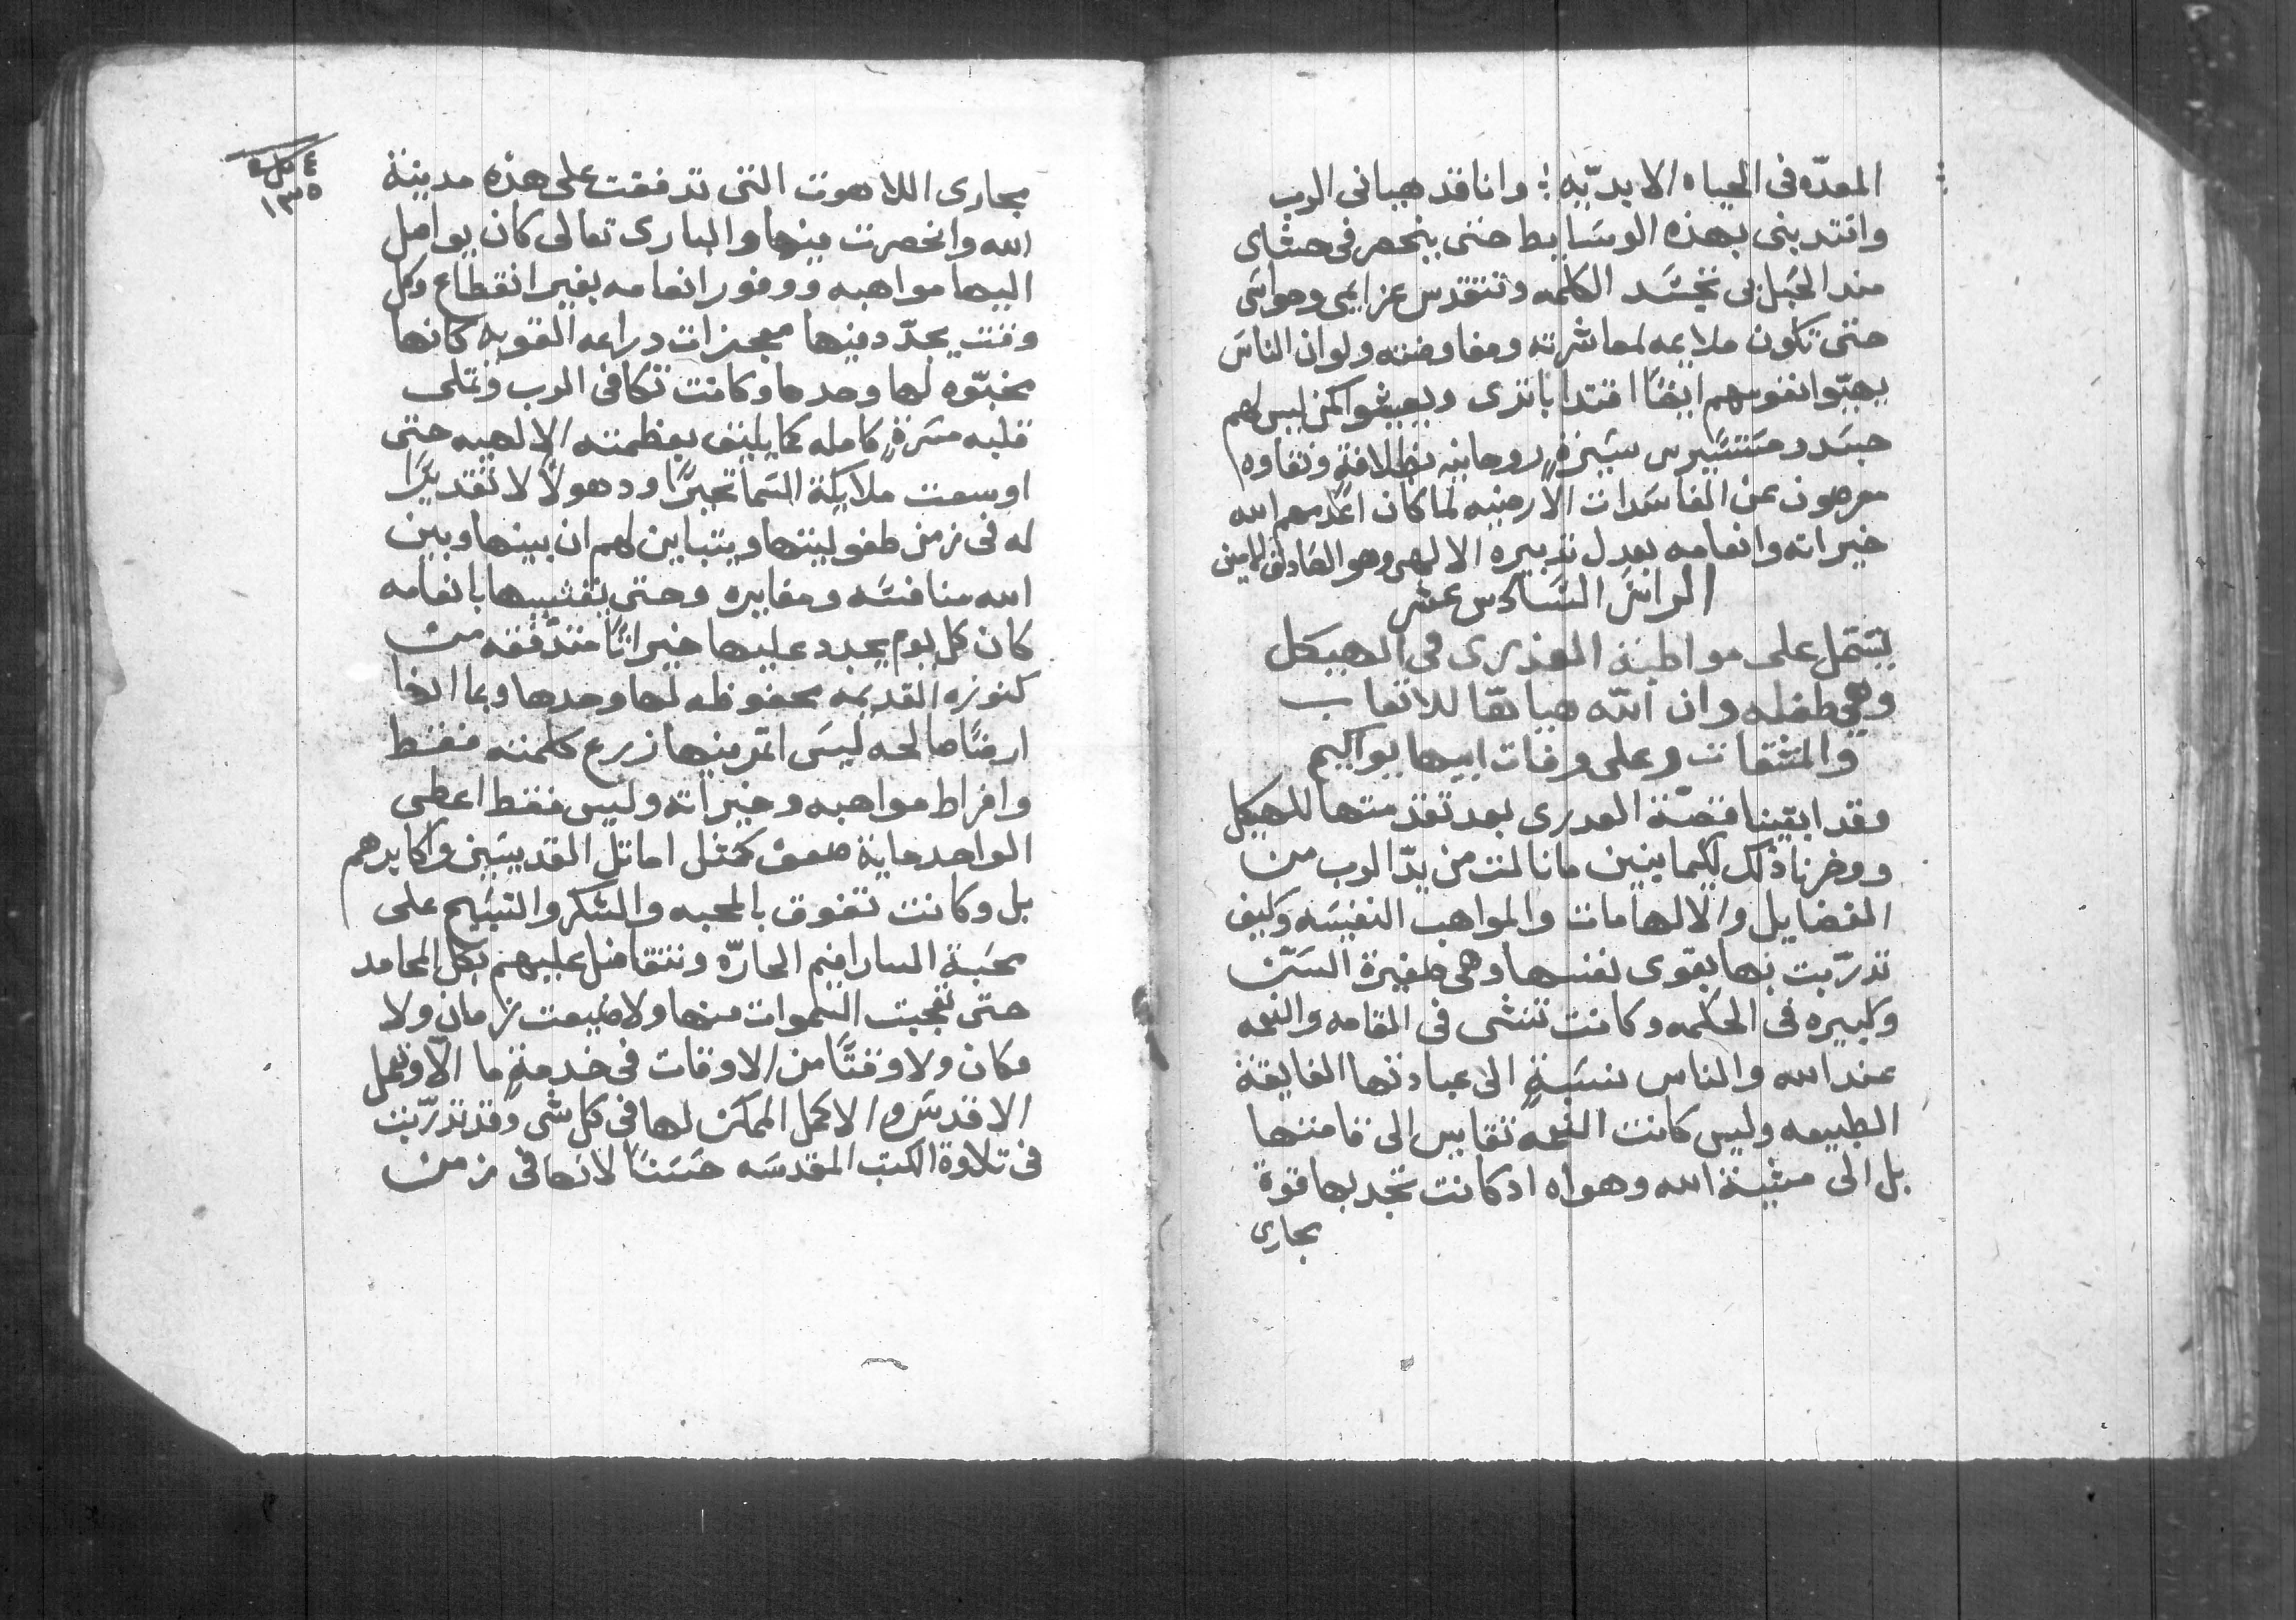 المعدّه فى الحياه الابديّه ؛ وانا قد هيانى الرب
وافتدينى بهذه الوسَايط حتى ينحصر فى حشاى
مند الحَبل فى تجسَّد الكلمه وتتقدس عزايمى وحواسَى
حتى تكون ملايمه لمعاشرته ومفاوضته ولوان الناسَ
يهيّوا نفوسهم ايضًا اقتدا باثرى ويعيشوا كمن ليس لهم
جسَد ومسَتسَيرين سَيرةٍ روحانيه بطلاقةٍ ونقاوه
معرضون عن المفاسَدات الارضيه لما كان اعَدمهم الله
خيراته وانعامه بعدل تدبيره الالهى وهو الصَادق الامين
الراسَ السَادس عشر
يشتمل على مواظبة العذرى فى الهيكل
وهى طفله وان الله هياها للاتعاب
والمشقات وعلى وفات ابيها يواكيم
وقد ابقينا قصّة العدرى بعد تقدمتها للهيكل
ووخرنا ذلك لكيما ينبين ما نالت من يدّ الرب من
الفضايل والالهامات والمواهب النفيسَه وكيف
تدرّبت بها بقوى نفسها وهى صغيرة السَنّ
وكبيره فى الحكمه وكانت تنشى فى القامه والنعمه
عند الله والناس نسَبةٍ الى عبادتها الفايقة
الطبيعه وليس كانت النعمه تقايس الى قامتها
بل الى مشية الله وهواه اد كانت تجد بها قوة
مجارى
٤ كراس
١٣٥
مجارى اللاهوت التى تدفقت على هذه مدينة
الله وانحصرت فيها والبارى تعالى كان يواصل
اليها مواهبه ووفور انعامه بغير انقطاع وكل
وقت يجدّد فيها معجزات دراعه القويه كانها
مخبّوه لها وحدها وكانت تكافى الرب وتملى
قلبه مسَرةٍ كامله كما يليق بعظمته الالهيه حتى
اوسعت ملايكة السَما تحيرًا ودهولًا لا تقديرًا
له فى زمن طفوليتها ويتباين لهم ان بينها وبين
الله منافسَه ومغايره وحتى يغشيها بانعامه
كان كل يوم يجدد عليها خيراتًا متدفقه من
كنوزه القديمه محفوظه لها وحدها وبما انها
ارضًا صالحه ليسَ اثمر فيها زرع كلمته فقط
وافراط مواهبه وخيراته وليس فقط اعطى
الواحد ماية ضعف كمثل اماثل القديسَين واكابرهم
بل وكانت تفوق بالمحبه والشكر والتسَبيح على
محَبة السارافيم الحارّه وتتفاضل عليهم بكل المحامد
حتى تعجبت السموات منها ولا ضيعت زمان ولا
مكان ولا وقتًا من الاوقات فى خدمةٍ ما الّا وتعمل
الاقدسَ والاكمل الممكن لها فى كل شى وقد تدرّبت
فى تلاوة الكتب المقدسَه حسَنًا لانها فى زمن